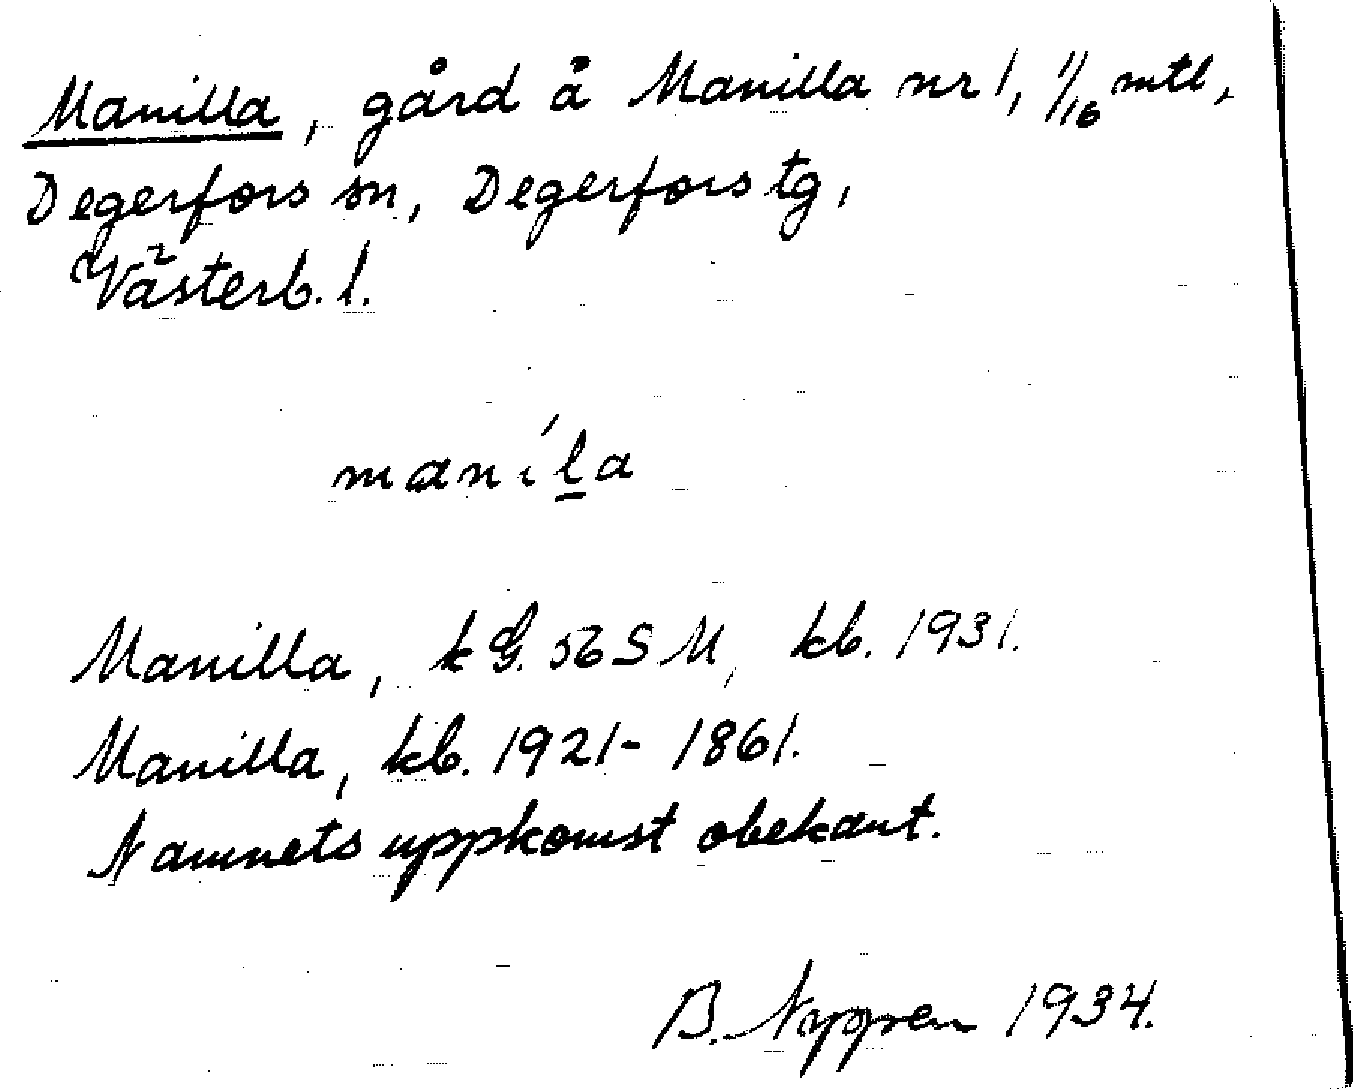 Manilla, gård å Manilla nr 1, 1/16 mtl,
Degerfors sn, Degerfors tg,
Västerb. l.
maníl̲a
Manilla, k G. 56 S M, kb. 1931.
Manilla, kb. 1921- 1861.
Namnets uppkomst obekant.
B. Nygren 1934.